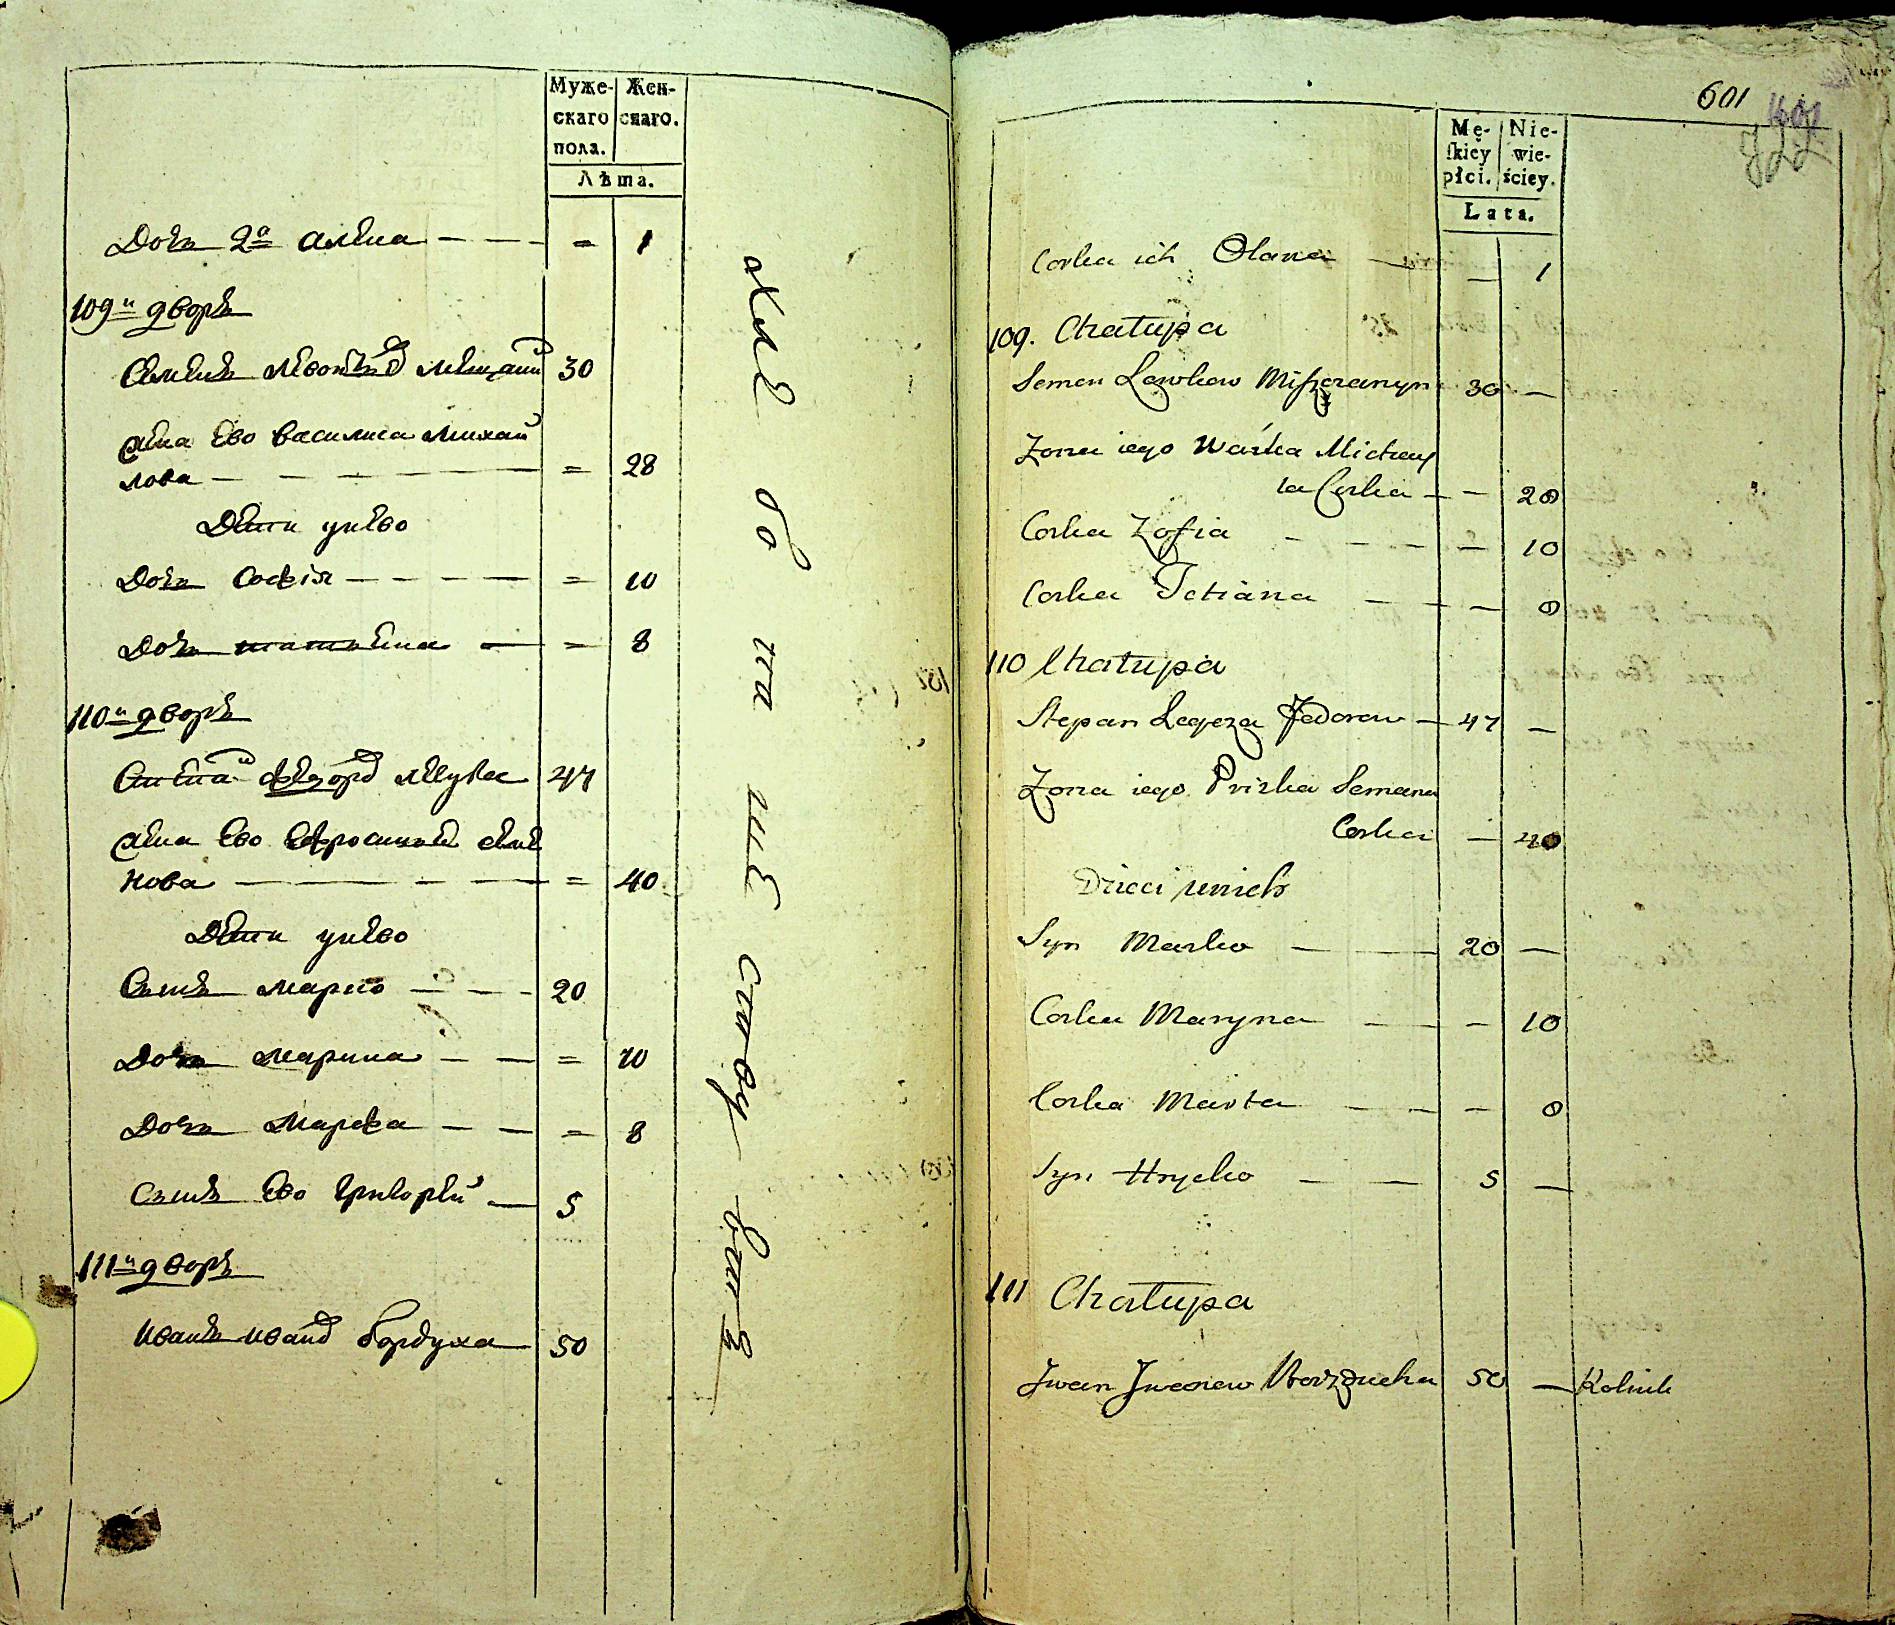 Муже-
скаго
пола.
Жен-
скаго.
Лѣта.
Дочь 2я Алена — — — = 1
109й дворъ
Семенъ Левоновъ мещанин 30
Жена ево Василиса Михай
лова — — — = 28
Дети у нево
Дочь Софія — — — — = 10
Дочь Татьяна — = 8
110й дворъ
Степан Федоров 47
Жена ево Ефросиния Семе
нова — — — = 40
Дети у нево
Сынъ Марко — — — 20
Дочь Марина — — = 10
Дочь Марфа — — = 8
Сынъ ево Григорей — 5
111й дворъ
Иванъ Иванов Бордуха 50
601
1601
Mę-
ſkiey
płci.
Nie-
wie-
ściey.
Lata.
Corka ich Olana — — 1
109. Chałupa
Semen Lawkow Miszczanyn 30 —
Zona iego Waśka Michay
ła Corka — — 28
Corka Zofia — — — — 10
Corka Tetiana — — — 8
110 Chałupa
Stepan Legeza Fedorow — 47 —
Zona iego Priska Semena
Corka — 40
Dzieci unich
Syn Marko — — 20 —
Corka Maryna — — — 10
Corka Marta — — — 8
Syn Hryćko — — 5 —
111 Chałupa
Jwan Jwanow Borzducha 50 — Rolnik